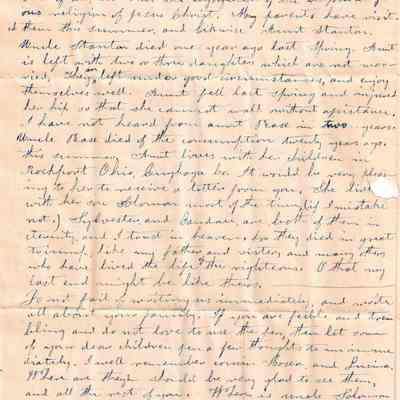 ous religion of Jesus Christ. My parents have visit-
ed them this summer, and likewise Aunt Stanton.
Uncle Stanton died one year ago last Spring. Aunt
is left with two or three daughters which are not mar-
ried, They left under good circumstances, and enjoy
themselves well. Aunt fell last Spring and injured
her hip so that she cannot walk without assistance.
I have not heard from aunt Rase in two years
Uncle Rase died of the consumption twenty years ago.
this summer. Aunt lives with her children in
Rockport Ohio, Cuyhoga Co. It would be very pleas
ing to her to receive a letter from you. She lives
with her son Solomon most of the time, (if I mistake
not.) Sylvester and are both of them in
eternity, and I trust in heaven, for they died in great
triumph, like my father and sisters, and many others
who have lived the life of the righteous. O that my
last end might be like theirs.
Do not fail of writing us immediately, and write
all about your family. If you are feeble and trem
bling and do not love to use the pen, then let some
of your dear children pen a few thoughts to us imme
diately. I well remember cousin and Lucina.
Where are they should be very glad to see them,
and all the rest of you. Where is uncle Solomon